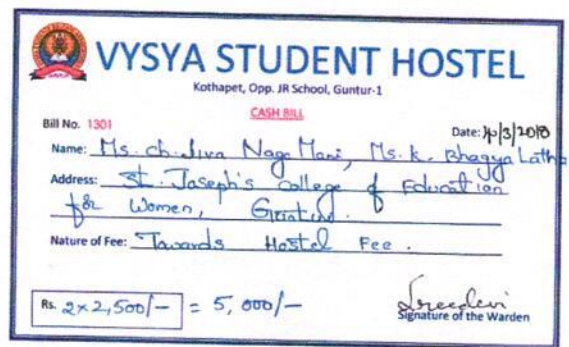 VYSYA STUDENT HOSTEL
Kothapet, Opp. JR School, Guntur-1
CASH BILL
Bill No. 1301
Date: /3/2018
Name: Ms. Ch. Siva Naga Mani, Ms. K. Bhagya Latha
Address: St. Joseph's College of Education
for Women, Guntur.
Nature of Fee: Towards Hostel Fee.
Rs. 2×2,500/- = 5,000/-
Sreedevi
Signature of the Warden